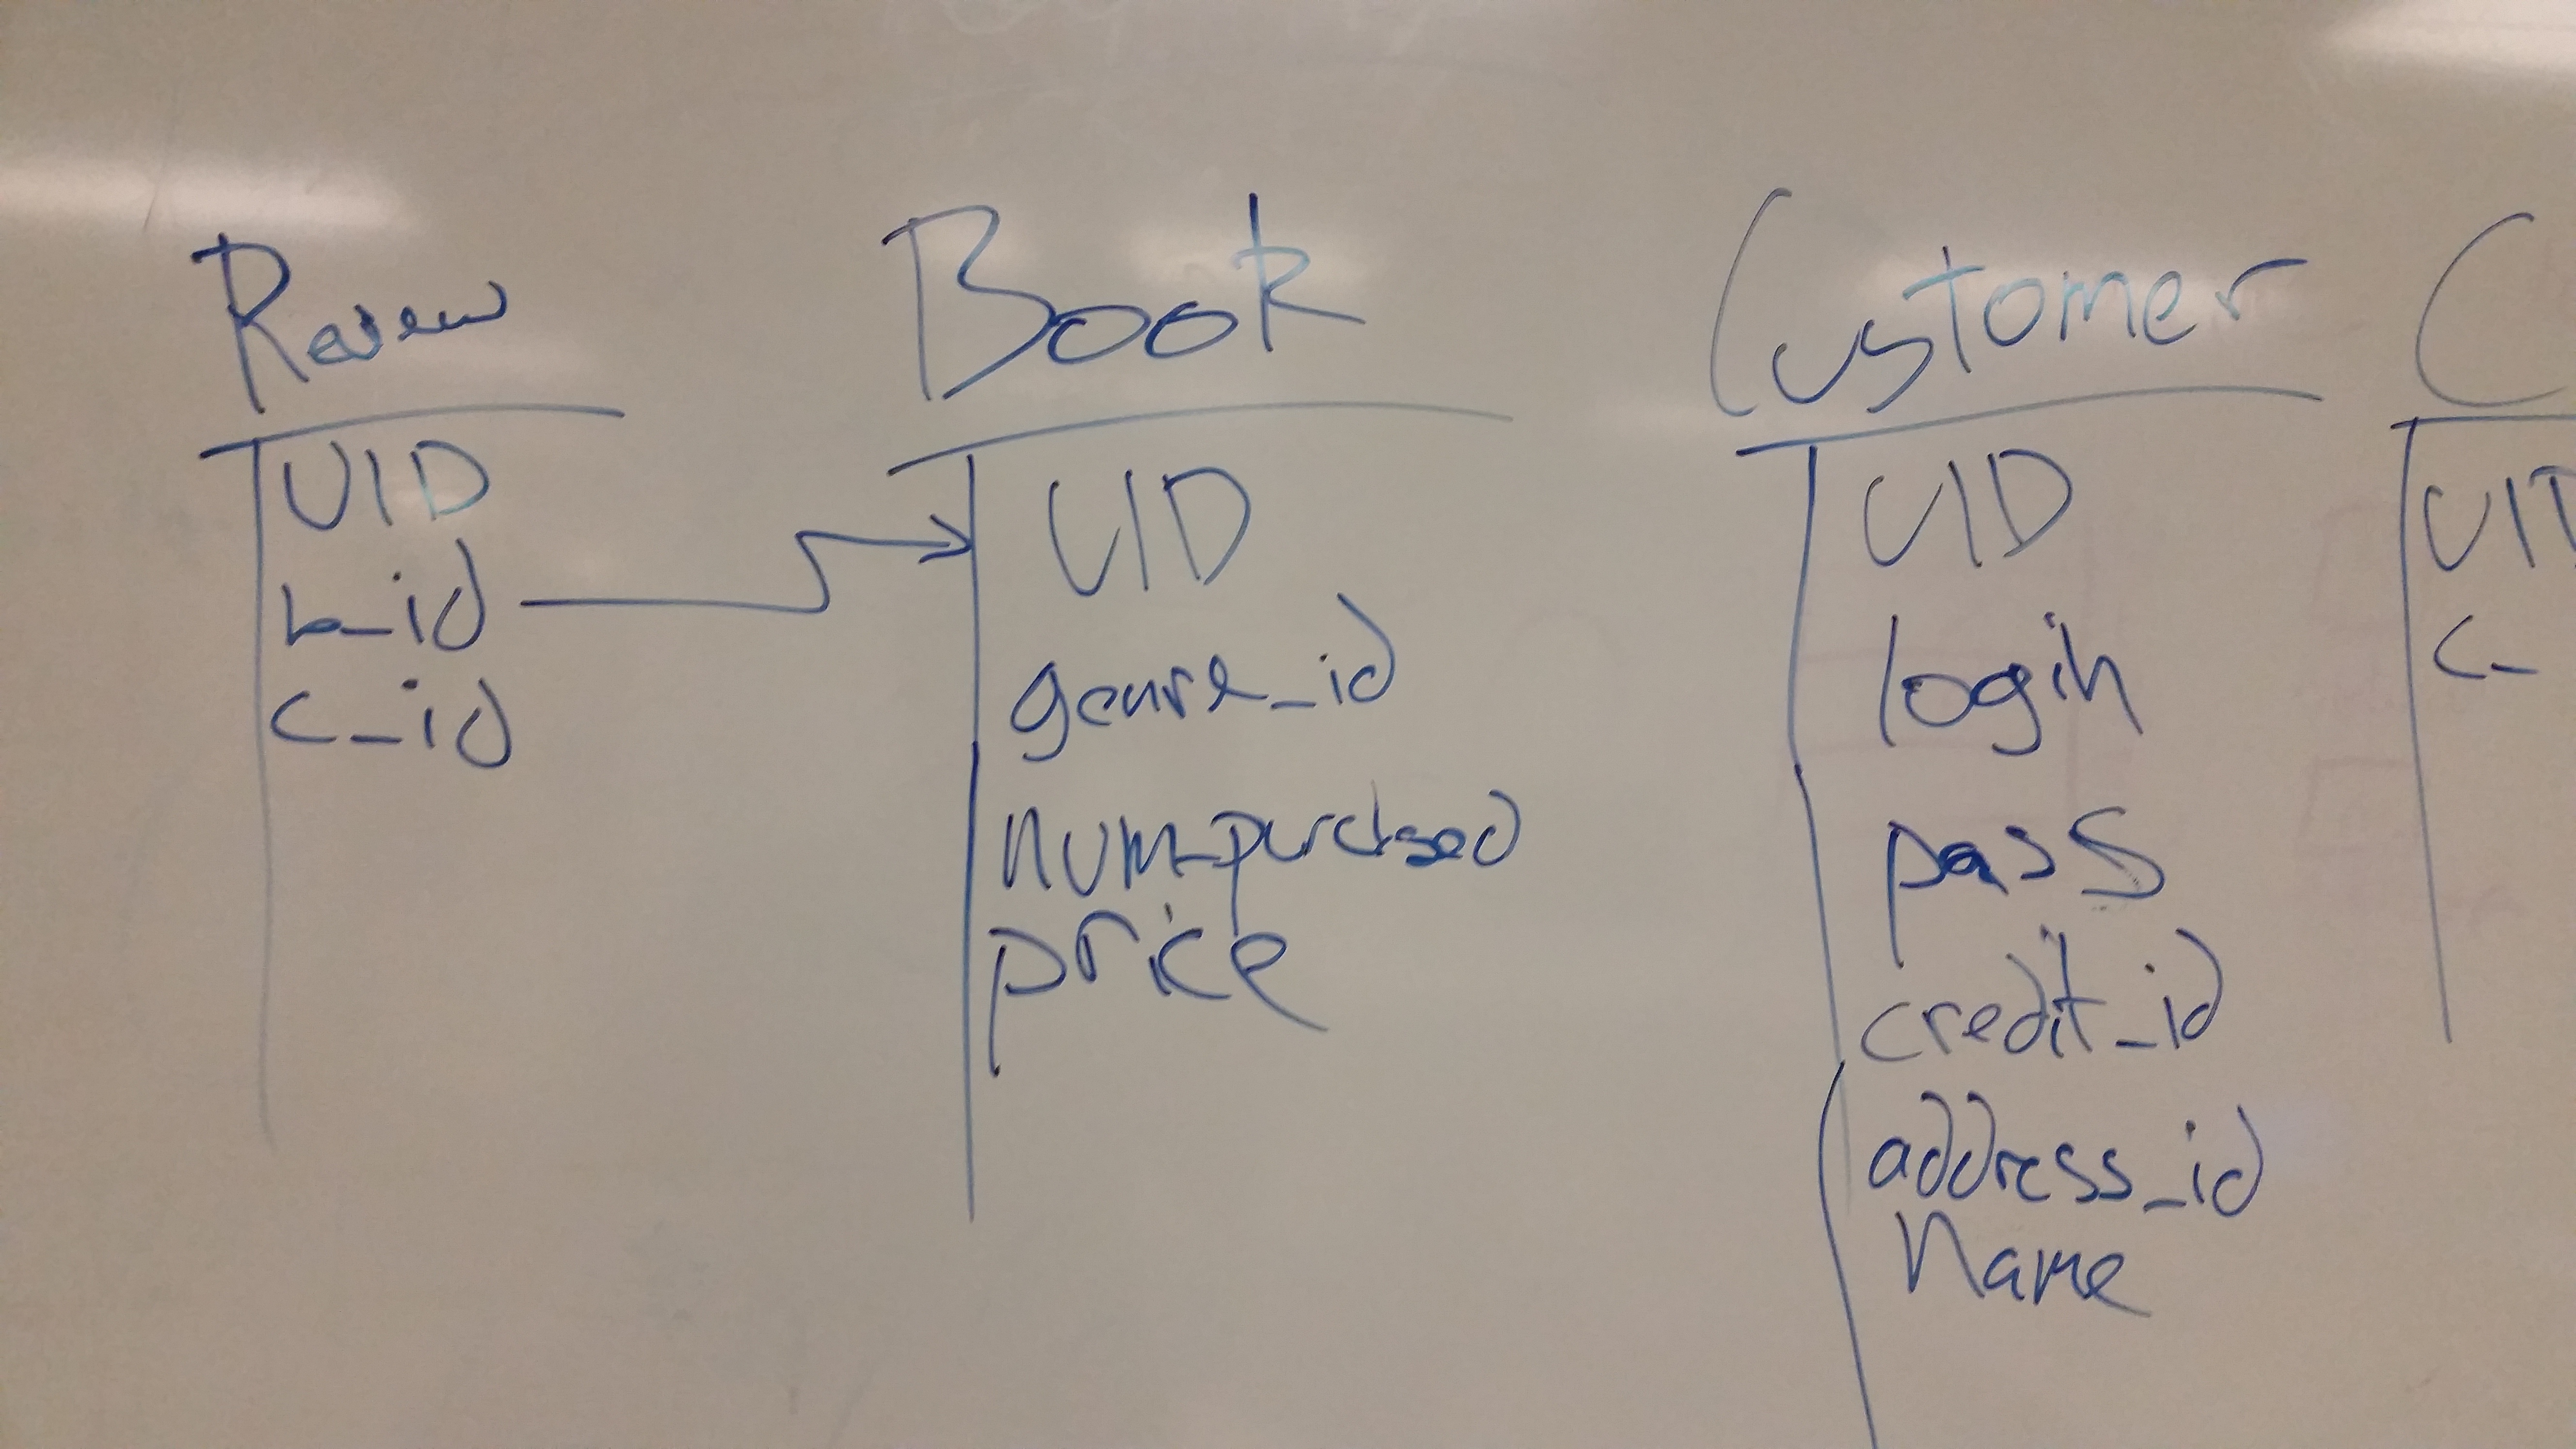 Review
UID
b_id
c_id
Book
UID
genre_id
num_purchsed
price
Customer
UID
login
pass
credit_id
address_id
name
C
UID
c_